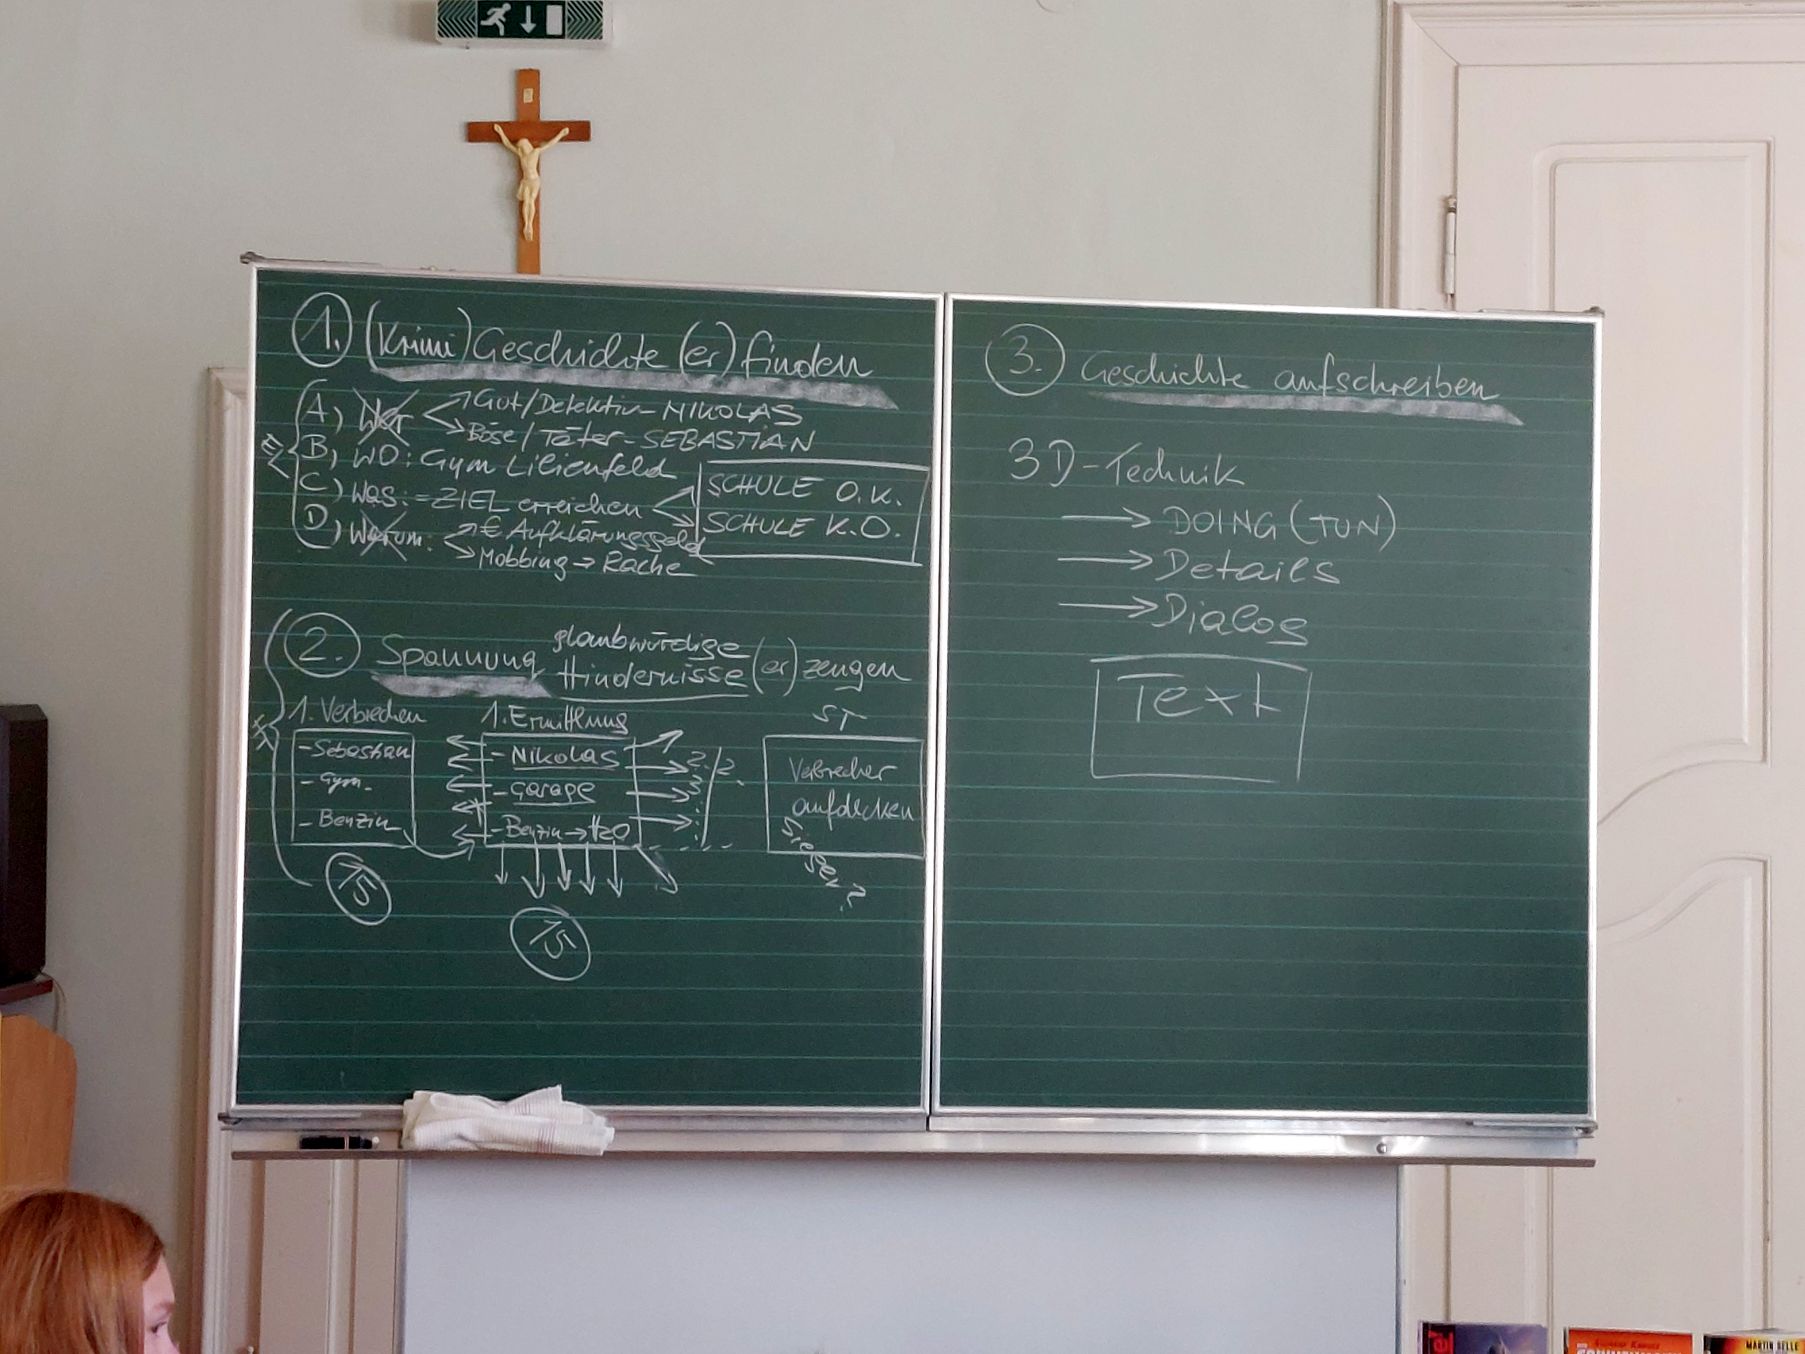 1. (Krimi) Geschichte (er) finden
A) Wer
Gut/Detektiv-NIKOLAS
Böse/Täter-SEBASTIAN
B) WO: Gym Lilienfeld
C) Was: = ZIEL erreichen
SCHULE O.K.
SCHULE K.O.
D) Warum:
€ Aufklärungsgeld
Mobbing → Rache
2. Spannung glaubwürdige
Hindernisse (er) zeugen
1. Verbrechen
- Sebastian
- Gym.
- Benzin
1. Ermittlung
- Nikolas
- Garage
- Benzin → H2O
2.
ST
Verbrecher
aufdecken
3. Geschichte aufschreiben
3D-Technik
→ DOING (TUN)
→ Details
→ Dialog
Text
MARTIN SELLE